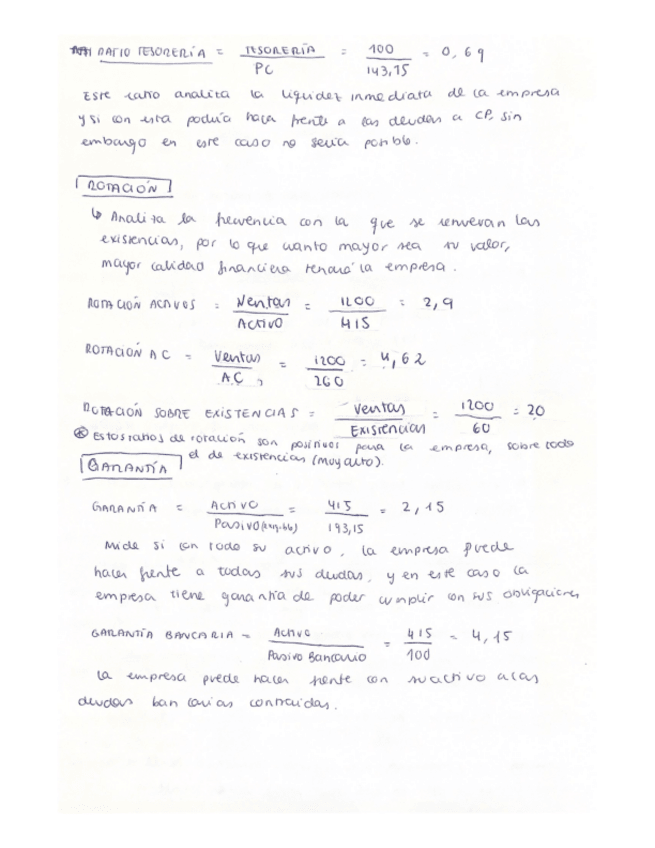 RATIO TESORERÍA = TESORERÍA / PC = 100 / 143,75 = 0,69
Este ratio analiza la liquidez inmediata de la empresa
y si con esta podría hacer frente a las deudas a CP, sin
embargo en este caso no sería posible.
ROTACIÓN
↳ Analiza la frecuencia con la que se renuevan las
existencias, por lo que cuanto mayor sea su valor,
mayor calidad financiera tendrá la empresa.
ROTACIÓN ACTIVOS = Ventas / Activo = 1200 / 415 = 2,9
ROTACIÓN AC = Ventas / AC = 1200 / 260 = 4,62
ROTACIÓN SOBRE EXISTENCIAS = Ventas / Existencias = 1200 / 60 = 20
* Estos ratios de rotación son positivos para la empresa, sobre todo
el de existencias (muy alto).
GARANTÍA
GARANTÍA = Activo / Pasivo (exigible) = 415 / 193,15 = 2,15
Mide si con todo su activo, la empresa puede
hacer frente a todas sus deudas, y en este caso la
empresa tiene garantía de poder cumplir con sus obligaciones
GARANTÍA BANCARIA = Activo / Pasivo Bancario = 415 / 100 = 4,15
La empresa puede hacer frente con su activo a las
deudas bancarias contraidas.